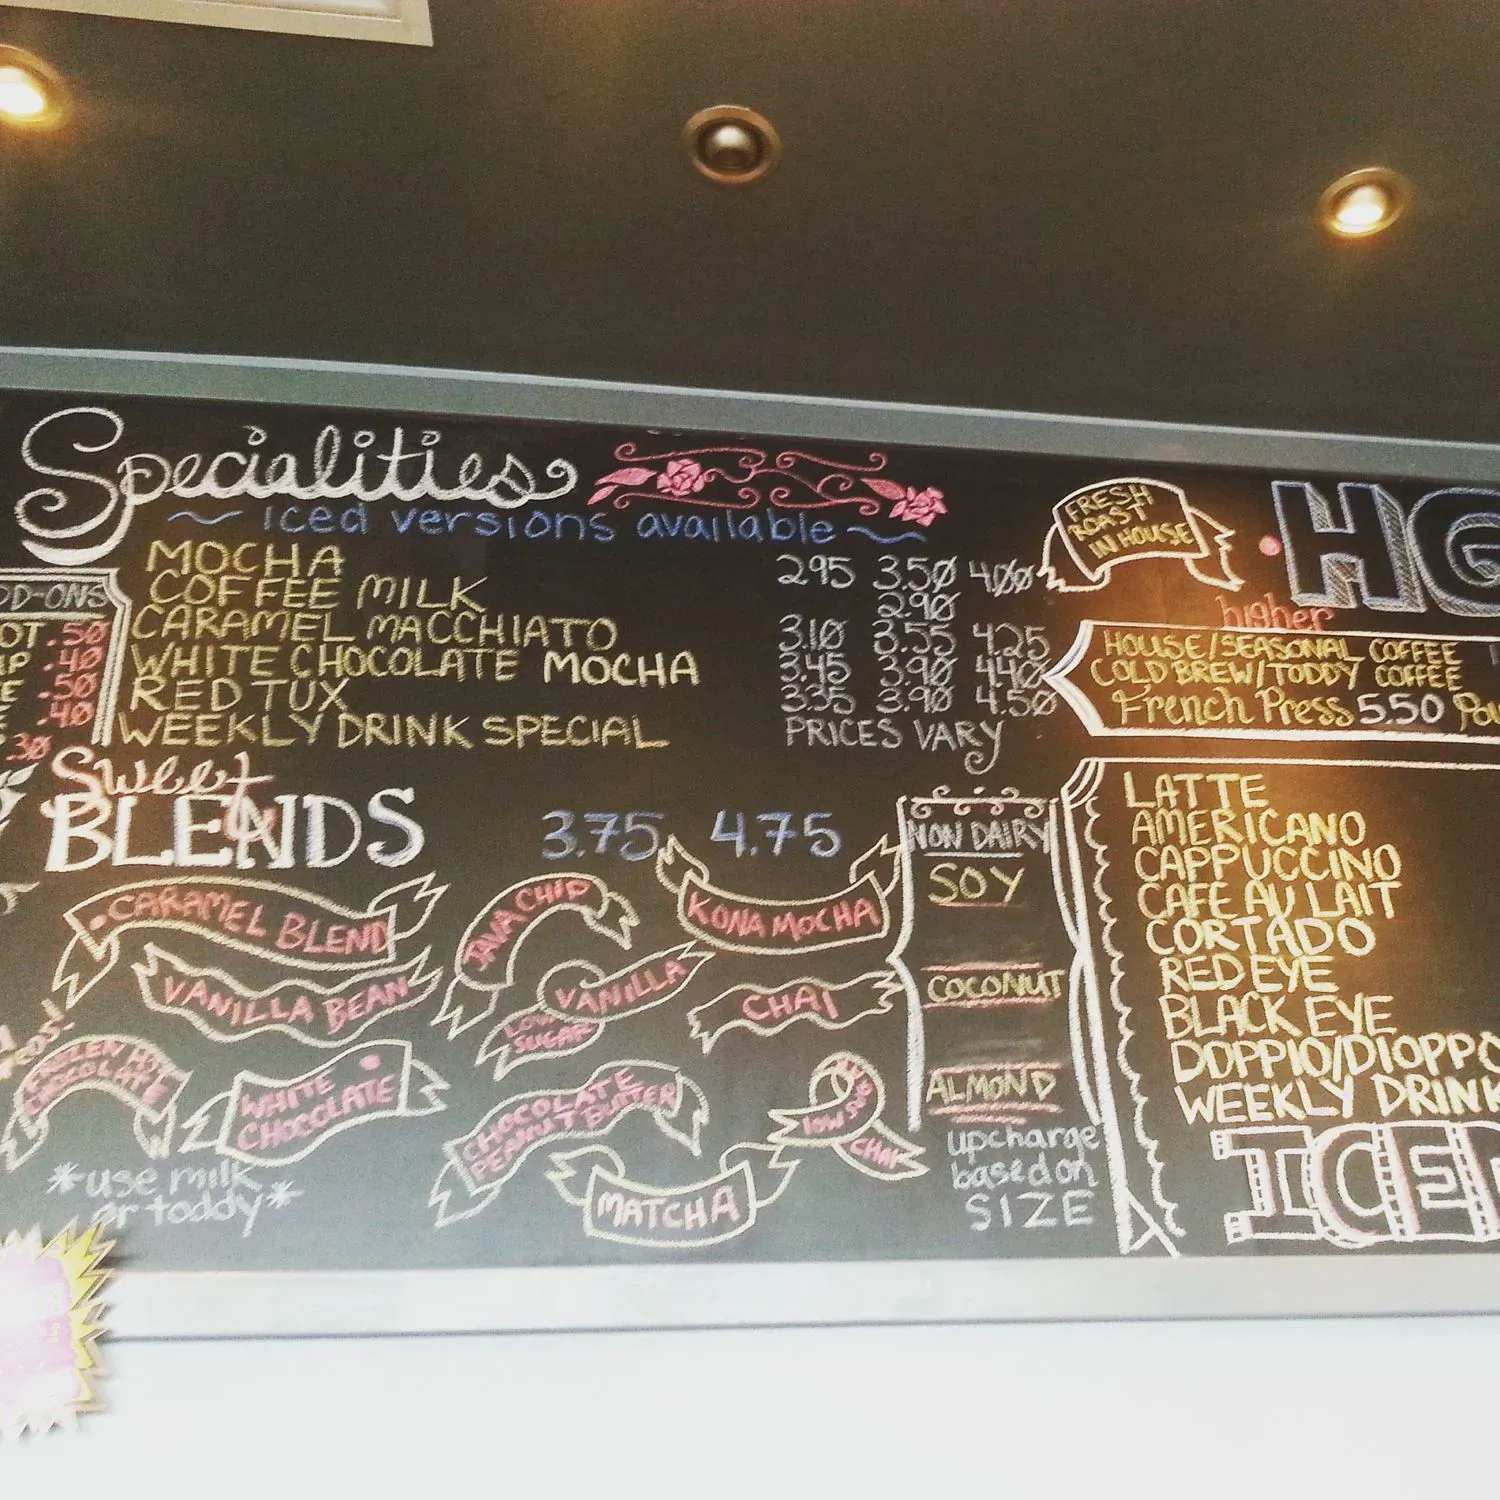 Specialities
~ iced versions available ~
MOCHA 2.95 3.50 4.00
COFFEE MILK 2.90
CARAMEL MACCHIATO 3.10 3.55 4.25
WHITE CHOCOLATE MOCHA 3.45 3.90 4.40
RED TUX 3.35 3.90 4.50
WEEKLY DRINK SPECIAL PRICES VARY
DD-ONS
OT .50
.40
.50
.40
.30
Sweet
BLENDS 3.75 4.75
CARAMEL BLEND
JAVA CHIP
KONA MOCHA
VANILLA BEAN
LOW SUGAR VANILLA
CHAI
FROZEN HOT CHOCOLATE
WHITE CHOCOLATE
CHOCOLATE
PEANUT BUTTER
LOW SUGAR
CHAI
MATCHA
*use milk
or toddy*
NON DAIRY
SOY
COCONUT
ALMOND
upcharge
based on
SIZE
FRESH
ROAST
IN HOUSE
higher
HG
HOUSE/SEASONAL COFFEE
COLD BREW/TODDY COFFEE
French Press 5.50
LATTE
AMERICANO
CAPPUCCINO
CAFE AU LAIT
CORTADO
RED EYE
BLACK EYE
DOPPIO/DIOPPO
WEEKLY DRINK
ICED